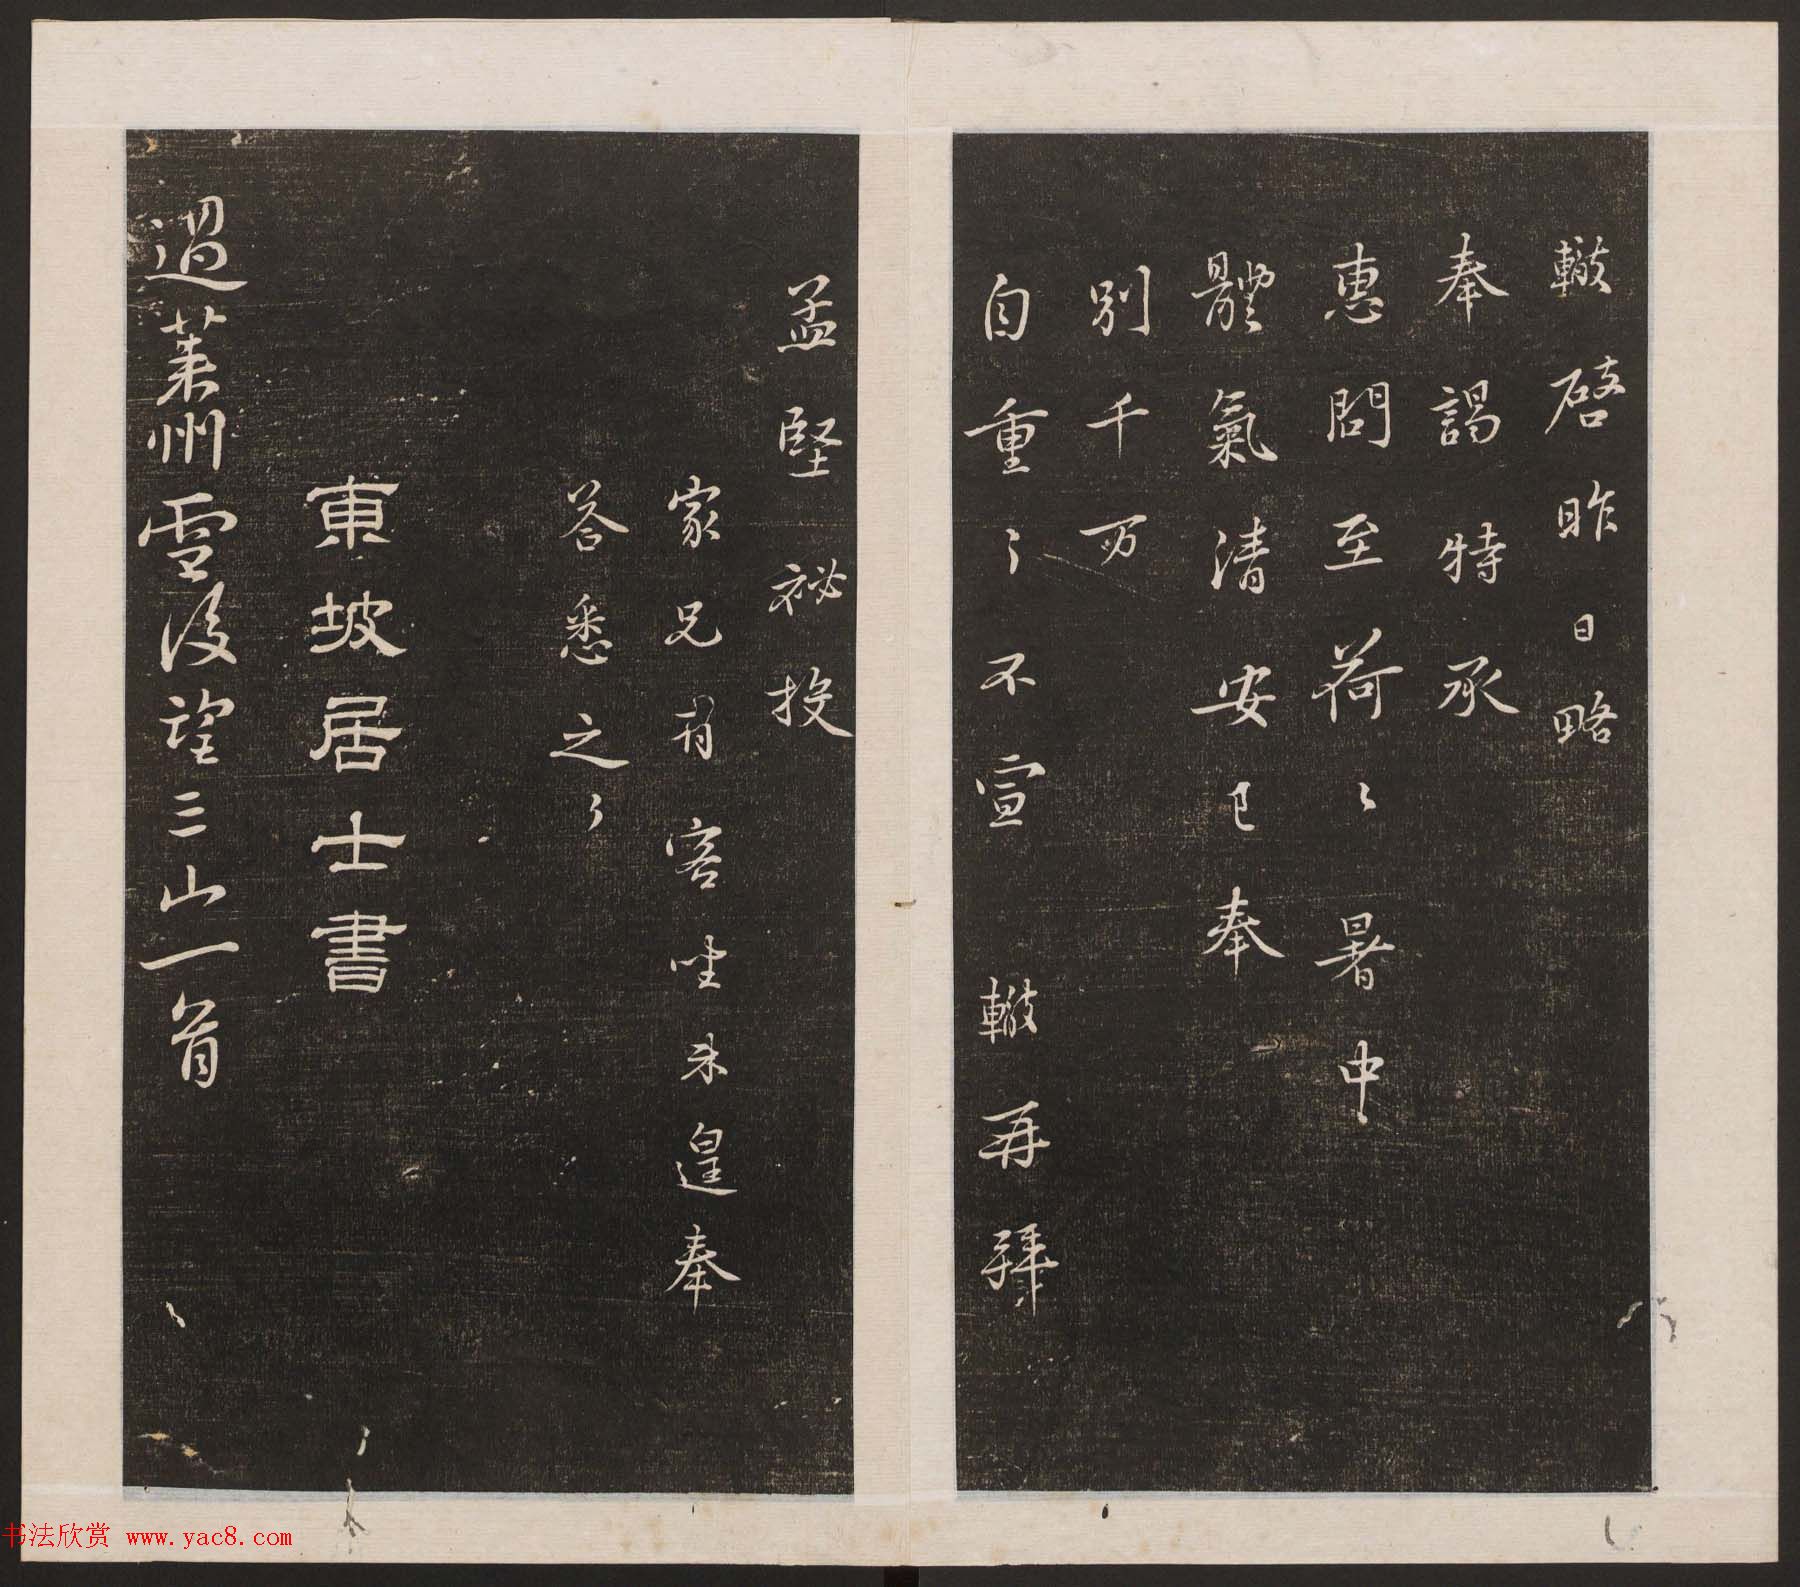 轍啓昨日略
奉謁特承
惠問至荷〻暑中
體氣清安已奉
別千万
自重〻不宣　轍再拜
孟堅祕校
家兄有客坐未遑奉
答悉之〻
東坡居士書
過萊州雪後望三山一首
书法欣赏 www.yac8.com